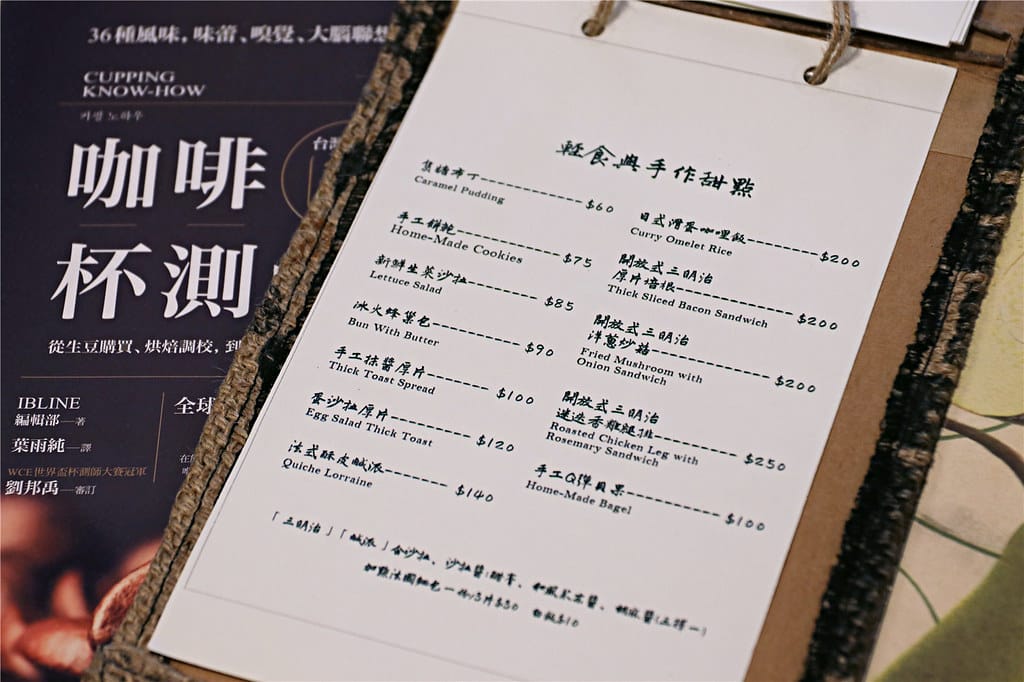 36種風味,味蕾、嗅覺、大腦聯想
CUPPING
KNOW-HOW
커핑 노하우
咖啡
杯測
從生豆購買、烘焙調校,到
IBLINE
編輯部—著
葉雨純—譯
WCE世界盃杯測師大賽冠軍
劉邦禹—審訂
全球
輕食與手作甜點
焦糖布丁---------------$60
Caramel Pudding
手工餅乾---------------$75
Home-Made Cookies
新鮮生菜沙拉----------$85
Lettuce Salad
冰火蜂巢包------------$90
Bun With Butter
手工抹醬厚片----------$100
Thick Toast Spread
蛋沙拉厚片------------$120
Egg Salad Thick Toast
法式酥皮鹹派----------$140
Quiche Lorraine
日式滑蛋咖哩飯----------$200
Curry Omelet Rice
開放式三明治
厚片培根-----------------$200
Thick Sliced Bacon Sandwich
開放式三明治
洋蔥炒菇-----------------$200
Fried Mushroom with
Onion Sandwich
開放式三明治
迷迭香雞腿排-------------$250
Roasted Chicken Leg with
Rosemary Sandwich
手工Q彈貝果-------------$100
Home-Made Bagel
「三明治」「鹹派」含沙拉、沙拉醬:甜李、和風
胡麻醬(三擇一)
加點法國麵包一份